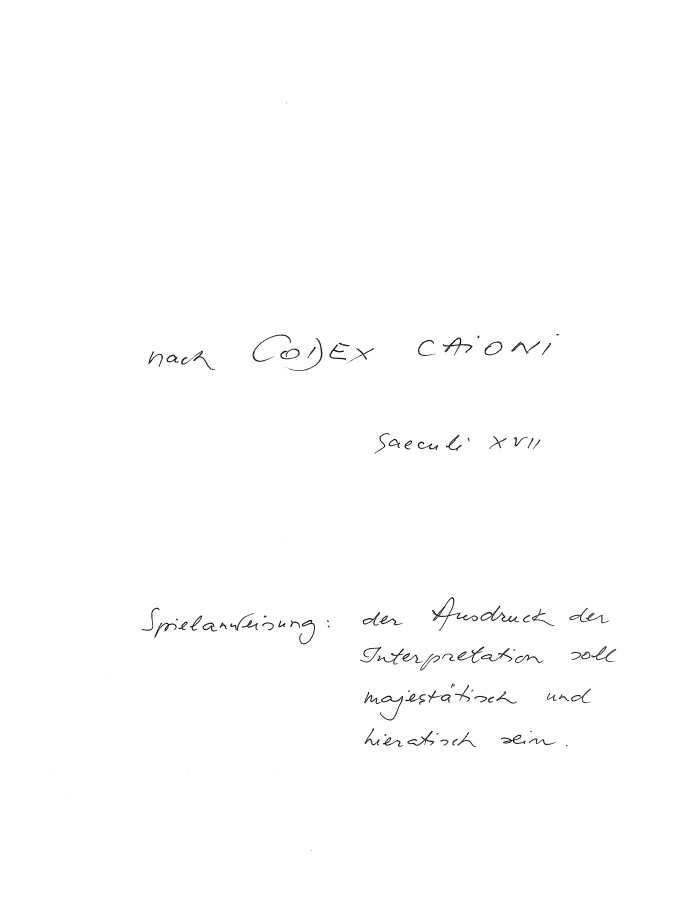 nach CODEX CAiONi
Saeculi XVII
Spielanweisung: der Ausdruck der
Interpretation soll
majestätisch und
hieratisch sein.